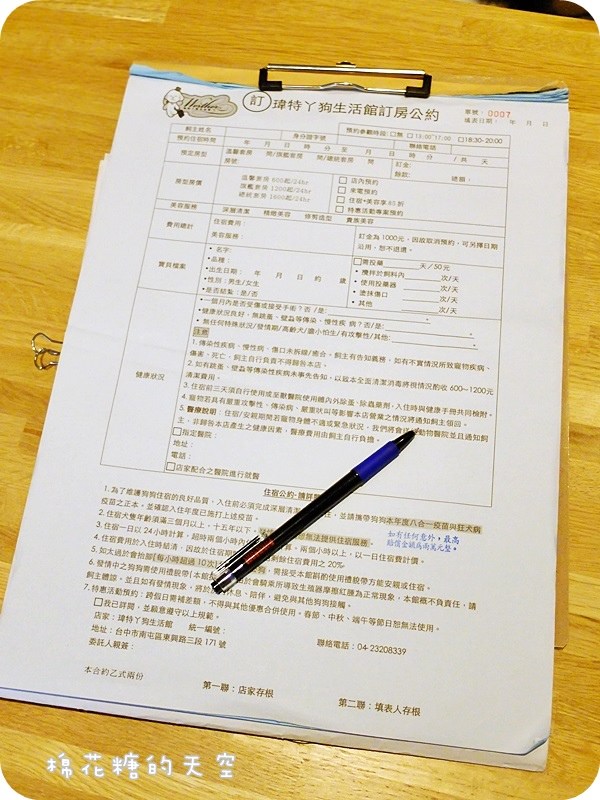 訂 瑋特丫狗生活館訂房公約
單號：0007
填表日期： 年 月 日
飼主姓名 身分證字號 預約參觀時段：□無 □15:00~17:00 □18:30~20:00
預約住宿時間 年 月 日 時 分 至 月 日 時 分 / 共 天
聯絡電話
預定房型 溫馨套房 間/旗艦套房 間/總統套房 間
房號： 訂金： 餘款： 總額：
房型房價
溫馨套房 800起/24hr
旗艦套房 1200起/24hr
總統套房 1800起/24hr
□ 店內預約
□ 來電預約
□ 住宿+美容享85折
□ 特惠活動專案預約
美容服務 深層清潔 精緻美容 修剪造型 貴族美容
費用總計 住宿費用：
美容服務：
訂金為1000元，因故取消預約，可另擇日
沿用，恕不退還。
寶貝檔案
• 名字:
• 品種：
• 出生日期： 年 月 日 約 歲
• 性別：男生/女生
• 是否結紮：是/否
□需投藥 天/50元
• 攪拌於飼料內 次/天
• 使用投藥器 次/天
• 塗抹傷口 次/天
• 其他 次/天
健康狀況
• 一個月內是否受傷或接受手術？否 /是:
• 健康狀況良好，無跳蚤、壁蝨等傳染、慢性疾病？否/是:
• 無任何特殊狀況/發情期/高齡犬/膽小怕生/有攻擊性/其他:
注意
1. 傳染性疾病、慢性病、傷口未拆線/癒合，飼主有告知義務，如有不實情況所致寵物疾病、
傷害、死亡，飼主自行負責不得歸咎本店。
2. 如有跳蚤、壁蝨等傳染性疾病未事先告知，以致本全面清潔消毒將視情況酌收 600~1200元
清潔費用。
3. 住宿前三天須自行使用或至獸醫院使用體內外除蚤、除蟲藥劑，入住時與健康手冊共同檢附。
4. 寵物若具有嚴重攻擊性、傳染病、嚴重吠叫等影響本店營業之情況將通知飼主領回。
5. 醫療說明：住宿/安親期間若寵物身體不適或緊急狀況，我們將會送 動物醫院並且通知飼
主，非歸咎本店產生之健康因素，醫療費用由飼主自行負擔。
□指定醫院：
地址：
電話：
□店家配合之醫院進行就醫
住宿公約-請詳閱
1. 為了維護狗狗住宿的良好品質，入住前必須完成深層清潔 ，並請攜帶狗狗本年度八合一疫苗與狂犬病
疫苗之正本，並確認入住年度已施打上述疫苗。
2. 住宿犬隻年齡須滿三個月以上，十五年以下， 恕無法提供住宿服務。
3. 住宿一日以 24小時計算，超時兩個小時內 計算，兩個小時以上，以一日住宿費計價。
如有任何意外，最高
賠償金額為兩萬元整。
4. 住宿費用於入住時結清，因故於住宿期間 剩餘住宿費用之 20%
5. 如太過於會抬腳(每小時超過 10次) 狗，需接受本館斟酌使用禮貌帶方能安親或住宿。
6. 發情中之狗狗需使用禮貌帶(本館 由於會騎乘所導致生殖器摩擦紅腫為正常現象，本館概不負責任，請
飼主體諒。並且如有發情現象，將於 休息、陪伴，避免與其他狗狗接觸。
7. 特惠活動預約：跨假日需補差額，不得與其他優惠合併使用。春節、中秋、端午等節日恕無法使用。
□我已詳閱，並願意遵守以上規範。
店家：瑋特丫狗生活館 統一編號：
地址：台中市南屯區東興路三段 171 號 聯絡電話：04-23208339
委託人親簽：
本合約乙式兩份
第一聯：店家存根 第二聯：填表人存根
棉花糖的天空